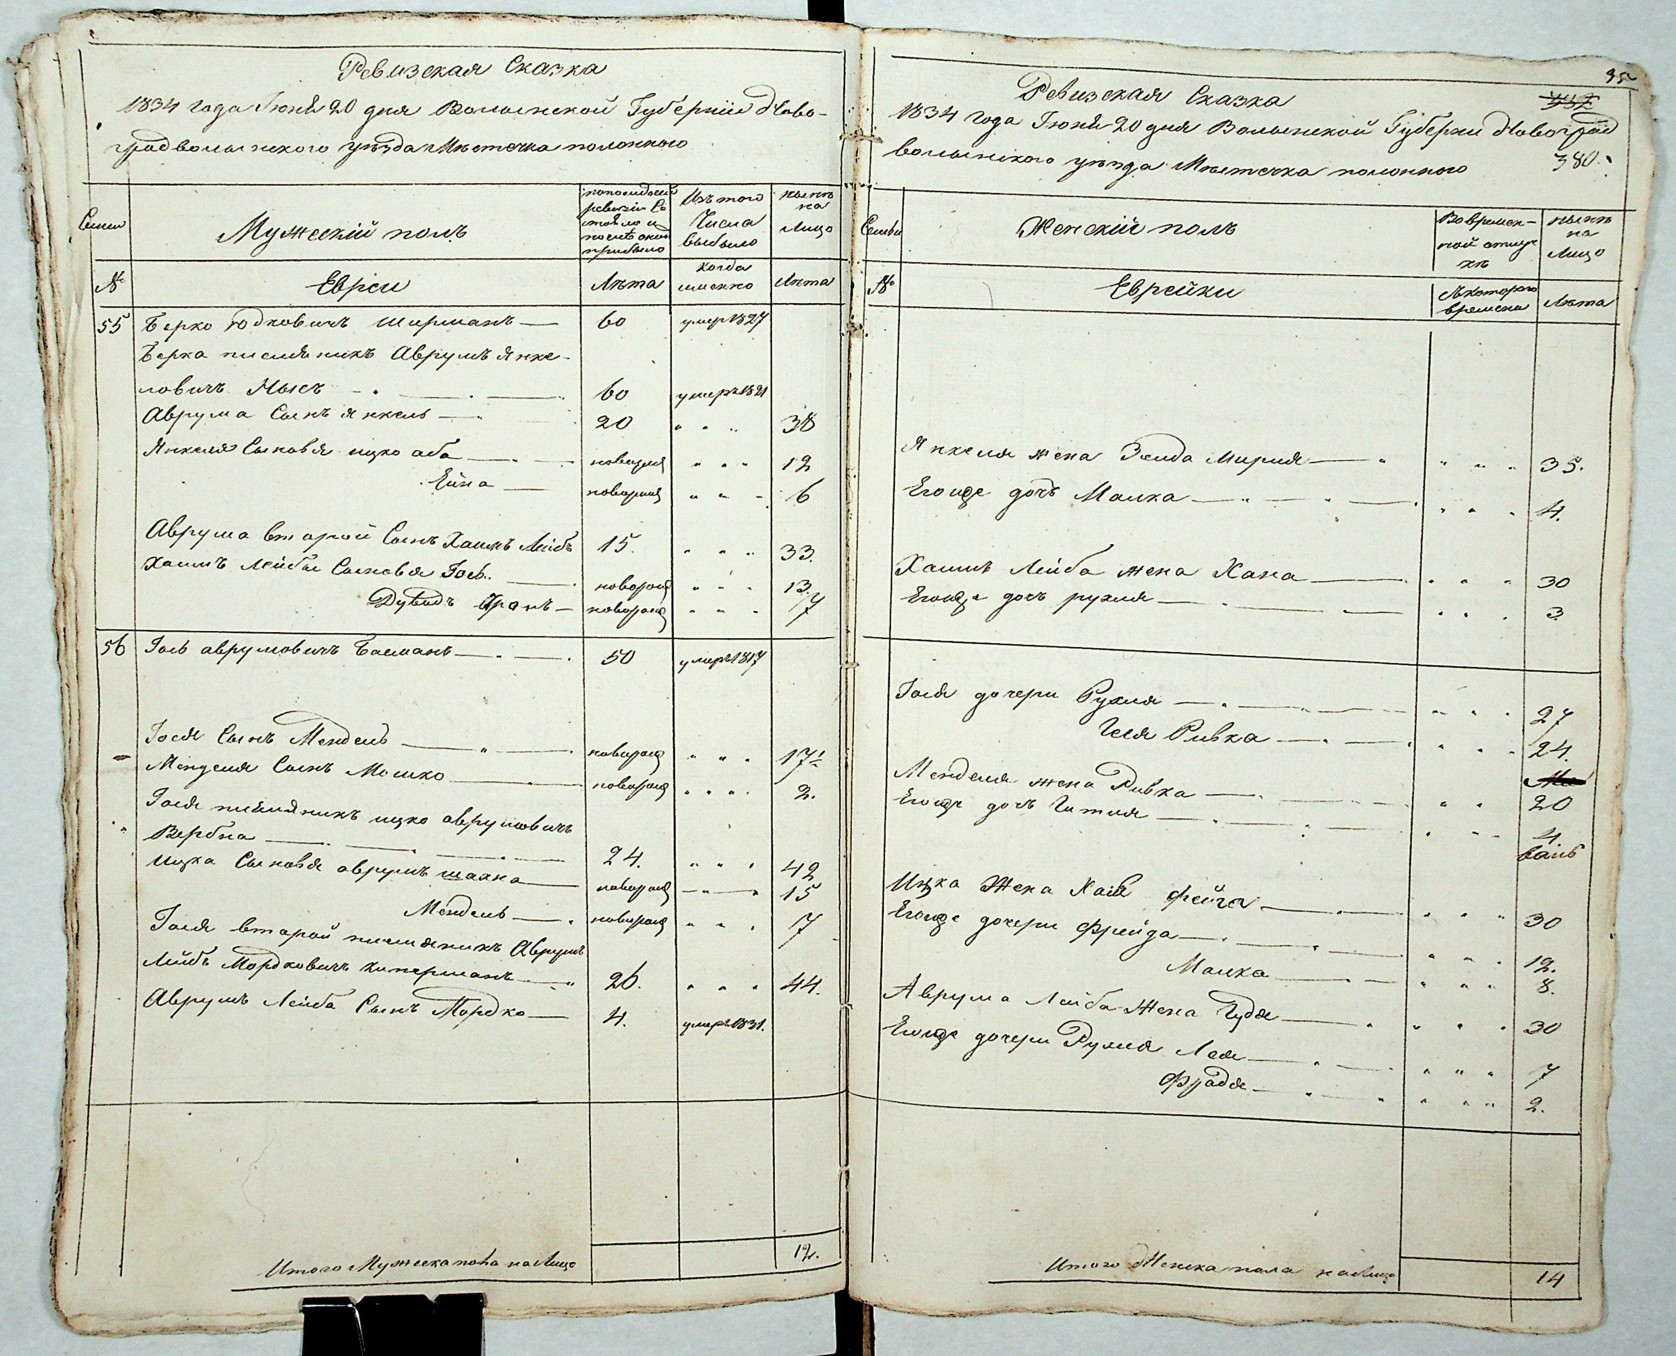 Ревизская Сказка
1834 года Іюня 20 дня Волынской Губерніи Ново-
градволынского уѣзда Мѣстечка полонного
Семьи
Мужескій полъ
по последней
ревизіи Со
стояло и
послѣ оной
прибыло
Изъ того
Числа
выбыло
нынѣ
на
Лицо
№
Евреи
Лѣта
когда
именно
Лѣта
55 Берко Юдковичъ Ширманъ 60 умеръ 1827
Берка племяникъ Аврумъ Янке-
ловичъ 60 умеръ 1821
Аврума Сынъ Янкель 20 38
Янкеля Сыновья ицко аба новорож 12
новорож 6
Аврума второй Сынъ Хаимъ Лейбъ 15. 33.
Хаимъ Лейбы Сыновья Іось новорож 13.
новорож 7
56 Іось аврумовичъ 50 умеръ 1817
Іося Сынъ Мендель новорож 17½
Менделя Сынъ Мошко новорож 2.
Іося племяникъ ицко аврумовичъ
Верба 24. 42
ицка Сыновья аврумъ шахна новорож 15
Мендель новорож 7
Іося второй племяникъ Аврумъ
Лейбъ Мордковичъ Киперманъ 26. 44.
Аврумъ Лейба Сынъ Мордко 4. умеръ 1831.
Итого Мужеска пола на Лицо 12.
35
380.
Ревизская Сказка
1834 года Іюня 20 дня Волынской Губерни Новоград
волынского уѣзда Мѣстечка полонного
Семьи
Женскій полъ
Во времен-
ной отлуч-
кѣ
нынѣ
на
Лицо
№
Еврейки
Съ которого
времени
Лѣта
Янкеля жена Зелда Мирля 35.
Егоже дочь Малка 4.
Хаимъ Лейба жена Хана 30
Егоже дочь рухля 3
Іося дочери Рухля 27
Ривка 24.
Менделя жена Ривка 20
Егоже дочь Гитля 4
Ицка Жена Хая Фейга 30
Егоже дочери Фрейда 12.
Малка 8.
Аврума Лейба Жена 30
Егоже дочери Рухля Лея 7
Фрадя 2.
Итого Женска пола на Лицо 14